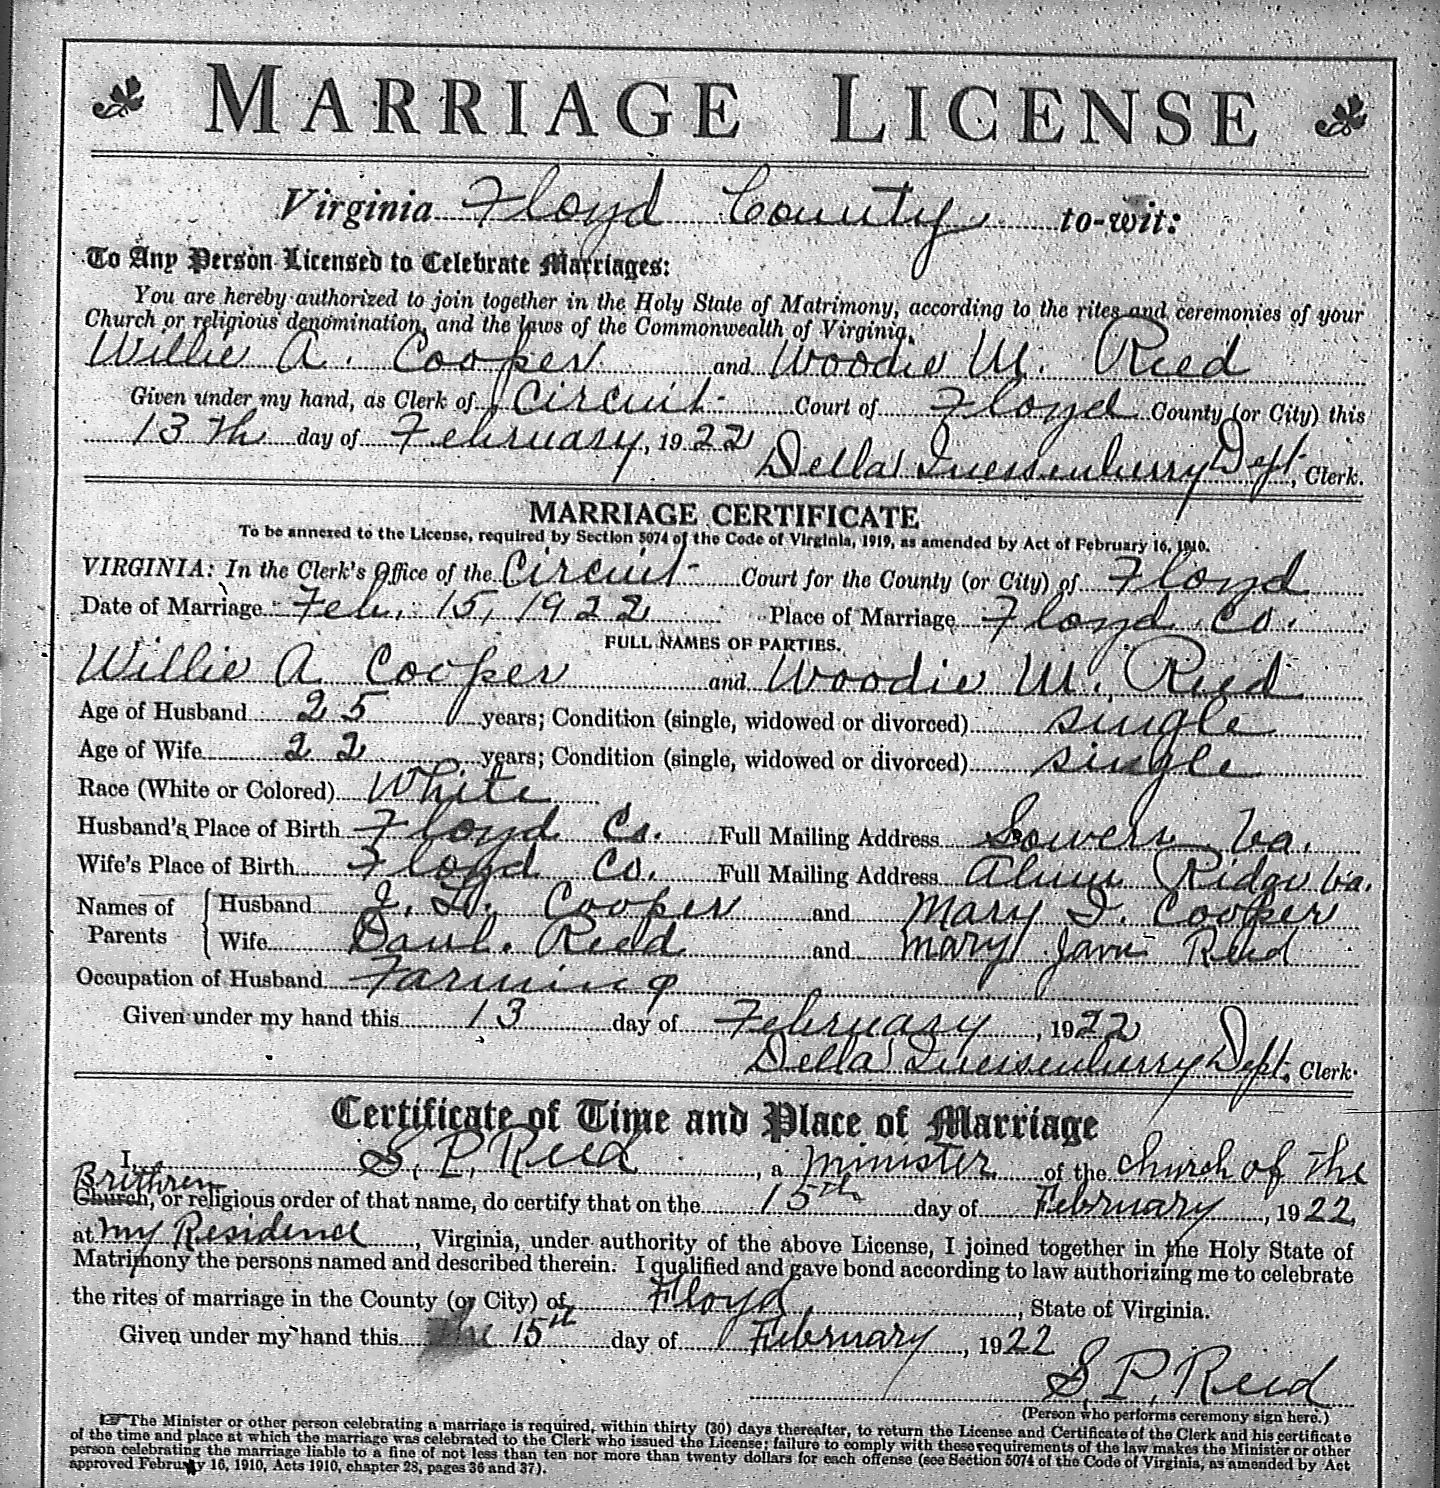 MARRIAGE LICENSE
Virginia Floyd County to-wit:
To Any Person Licensed to Celebrate Marriages:
You are hereby authorized to join together in the Holy State of Matrimony, according to the rites and ceremonies of your
Church or religious denomination, and the laws of the Commonwealth of Virginia,
Willie A. Cooper and Woodie M. Reed
Given under my hand, as Clerk of Circuit Court of Floyd County (or City) this
13th day of February, 1922 Della Quesenburry Dept, Clerk.
MARRIAGE CERTIFICATE
To be annexed to the License, required by Section 5074 of the Code of Virginia, 1919, as amended by Act of February 16, 1910.
VIRGINIA: In the Clerk's Office of the Circuit Court for the County (or City) of Floyd
Date of Marriage Feb. 15, 1922 Place of Marriage Floyd Co.
FULL NAMES OF PARTIES.
Willie A Cooper and Woodie M. Reed
Age of Husband 25 years; Condition (single, widowed or divorced) single
Age of Wife 22 years; Condition (single, widowed or divorced) single
Race (White or Colored) White
Husband's Place of Birth Floyd Co. Full Mailing Address Sowers Va.
Wife's Place of Birth Floyd Co. Full Mailing Address Alum Ridge Va.
Names of Parents Husband Cooper and Mary I. Cooper
Wife Reed and Mary Jane Reed
Occupation of Husband Farming
Given under my hand this 13 day of February, 1922
Della Quesenburry Dept, Clerk.
Certificate of Time and Place of Marriage
I, S. P. Reed, a minister of the church of the
Brithren
Church, or religious order of that name, do certify that on the 15th day of February, 1922,
at my Residence, Virginia, under authority of the above License, I joined together in the Holy State of
Matrimony the persons named and described therein. I qualified and gave bond according to law authorizing me to celebrate
the rites of marriage in the County (or City) of Floyd, State of Virginia.
Given under my hand this 15th day of February, 1922
S. P. Reed
(Person who performs ceremony sign here.)
☞ The Minister or other person celebrating a marriage is required, within thirty (30) days thereafter, to return the License and Certificate of the Clerk and his certificate
of the time and place at which the marriage was celebrated to the Clerk who issued the License; failure to comply with these requirements of the law makes the Minister or other
person celebrating the marriage liable to a fine of not less than ten nor more than twenty dollars for each offense (see Section 5074 of the Code of Virginia, as amended by Act
approved February 16, 1910, Acts 1910, chapter 28, pages 36 and 37).